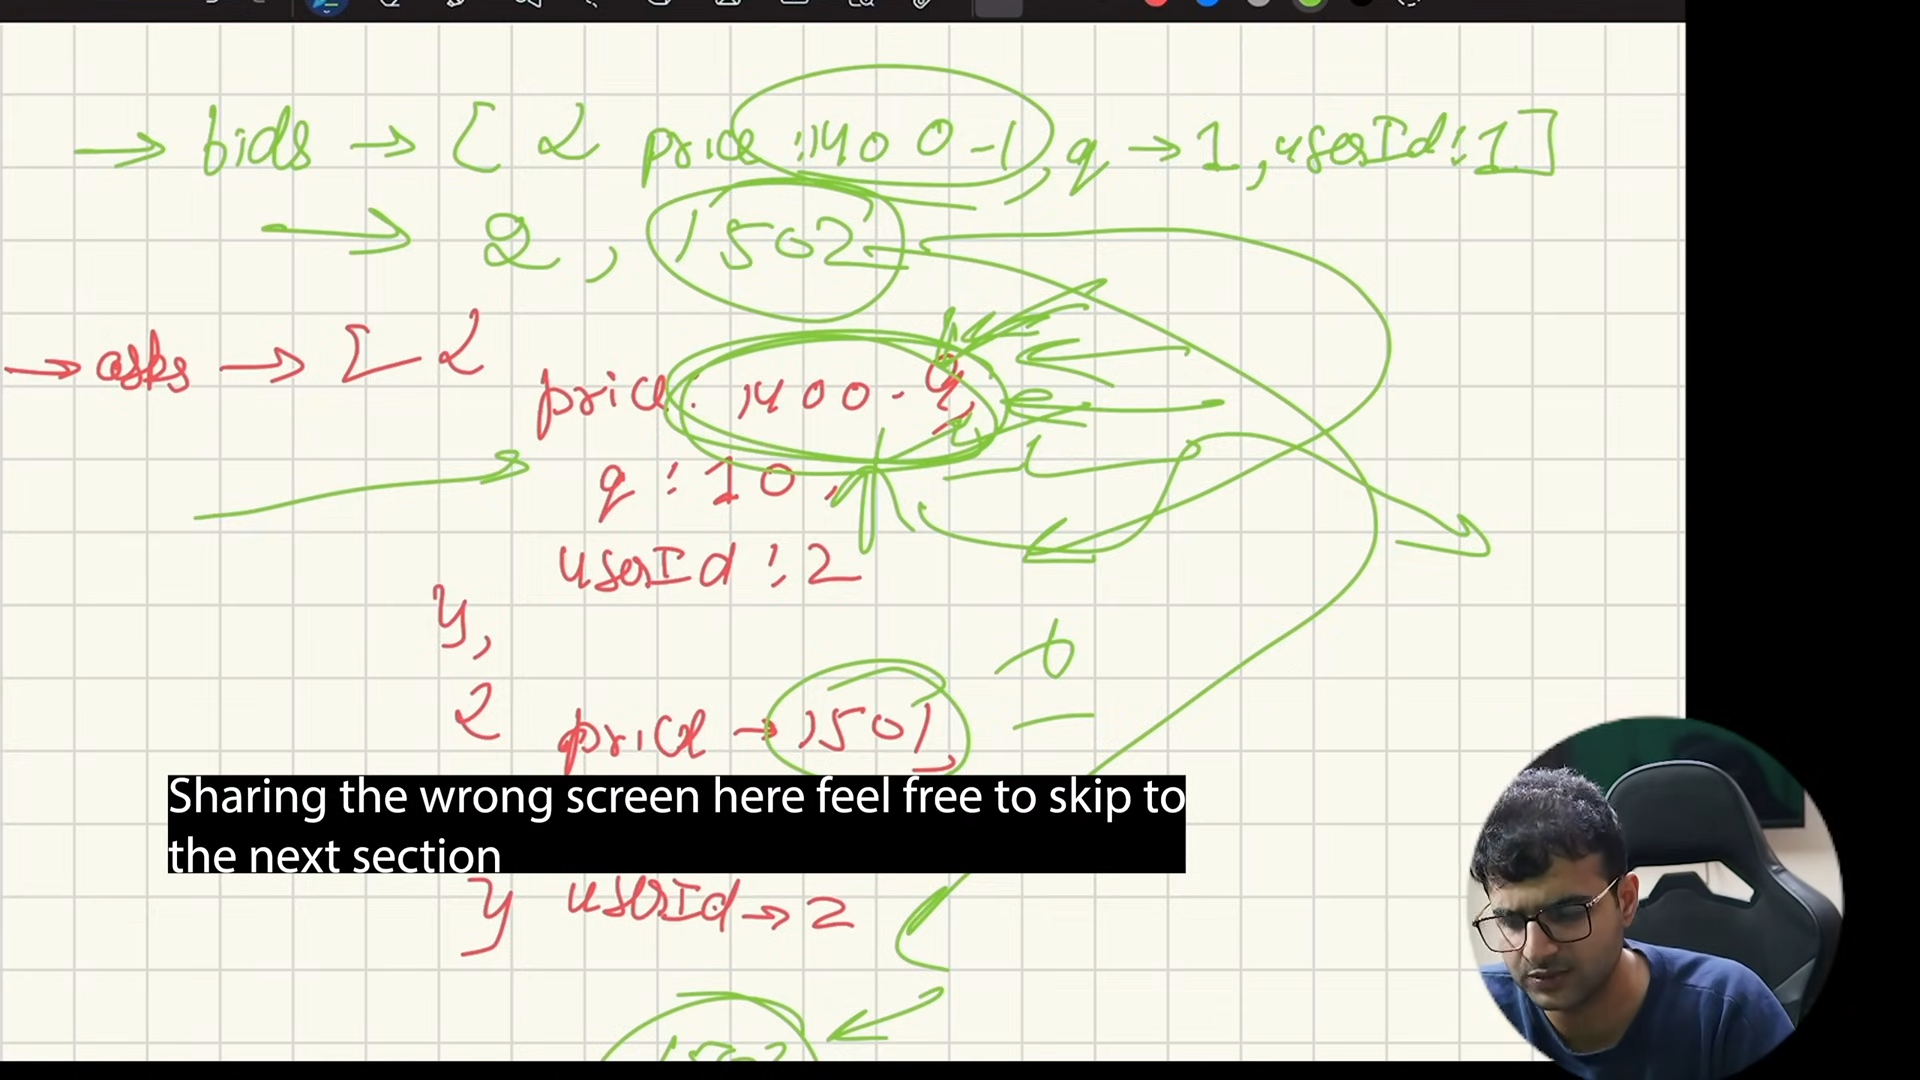 → bids → [ { price : 1400.1, q → 1, userId : 1 ]
→ 2, 1502
→ asks → [ {
price : 1400.
q : 10,
userId : 2
},
{ price → 1501,
Sharing the wrong screen here feel free to skip to
the next section
} userId → 2
1502